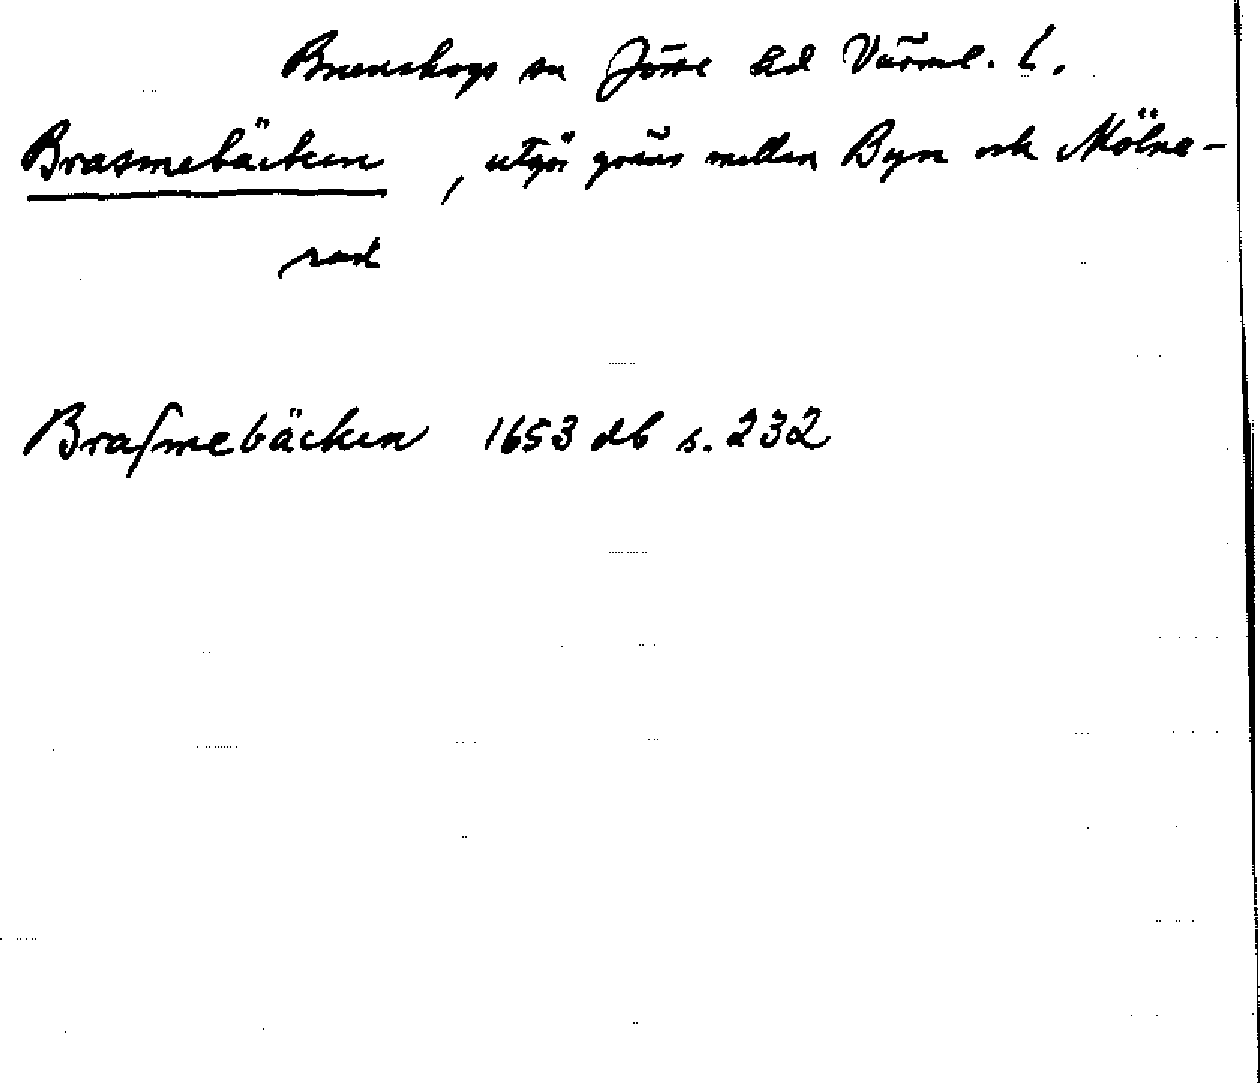 Brunskogs sn Jösse hd Värml. l.
Brasmebäcken, utgör gräns mellan Byn och Mölne-
rud
Braſmebäcken 1653 db s. 232